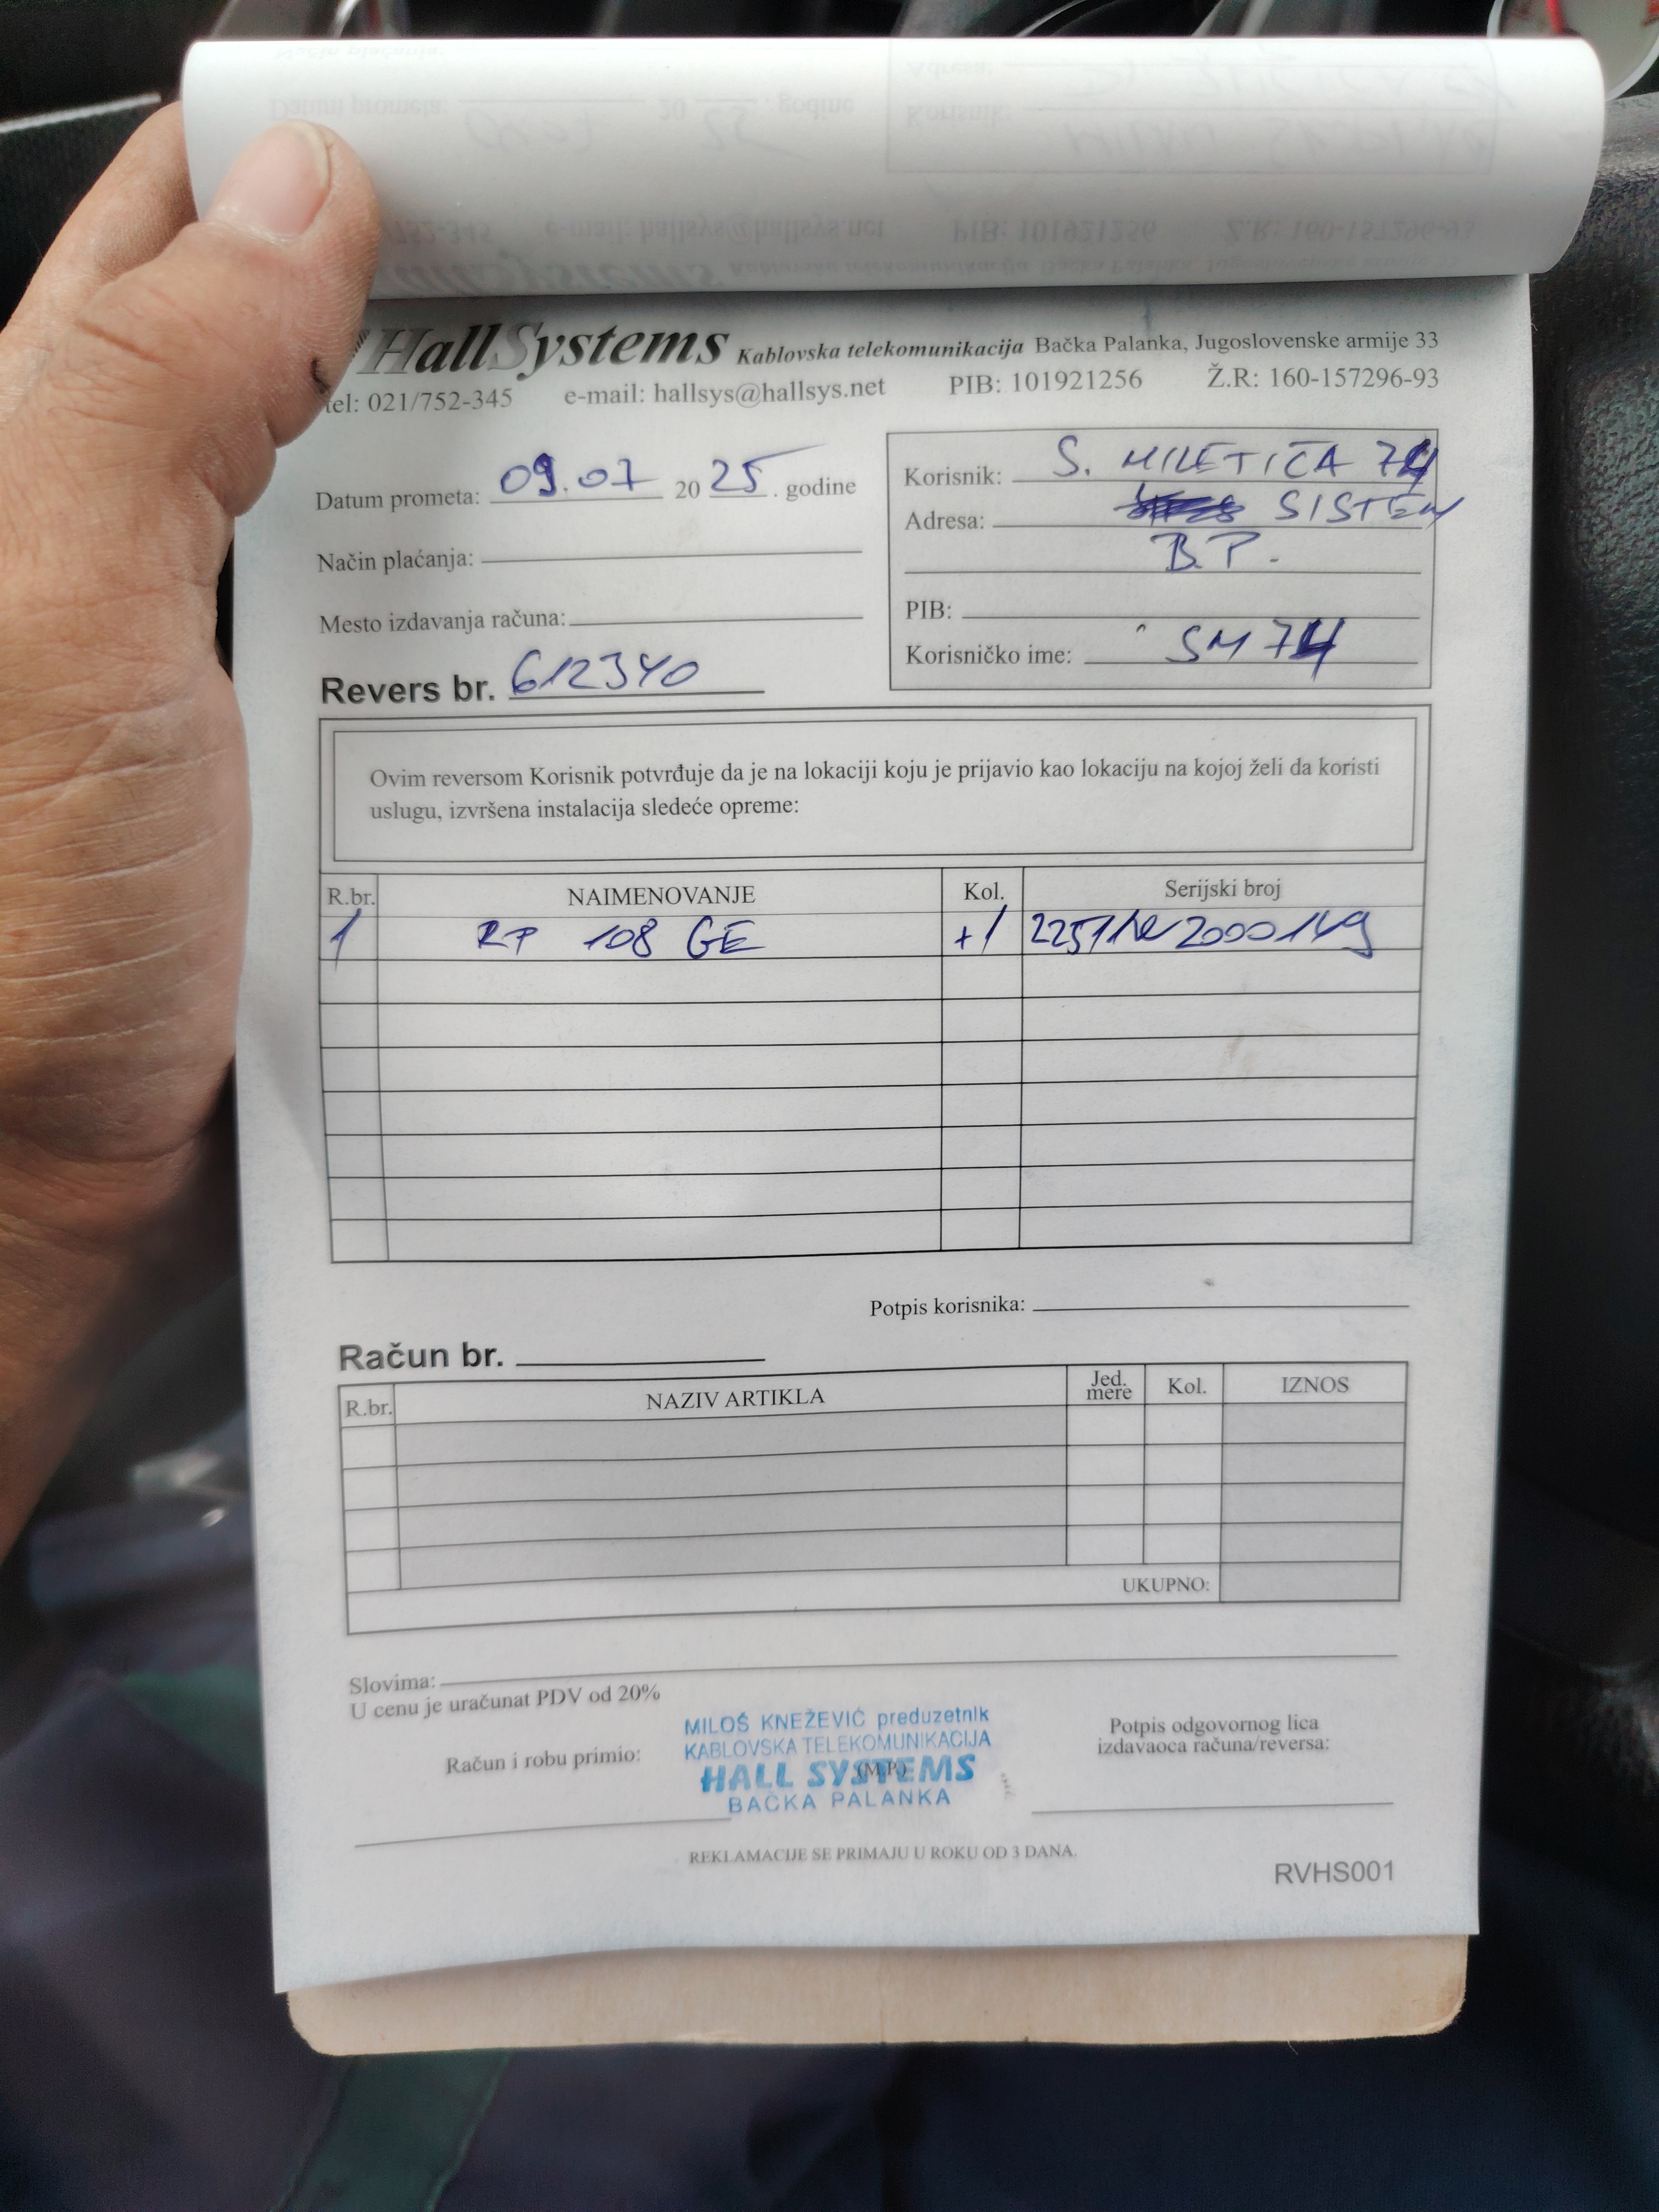 HallSystems Kablovska telekomunikacija Bačka Palanka, Jugoslovenske armije 33
tel: 021/752-345 e-mail: hallsys@hallsys.net PIB: 101921256 Ž.R: 160-157296-93
Datum prometa: 09.07 20 25 . godine
Način plaćanja:
Mesto izdavanja računa:
Revers br. 612340
Korisnik: S. MILETIĆA 74
Adresa: SISTEM
B.P.
PIB:
Korisničko ime: SM 74
Ovim reversom Korisnik potvrđuje da je na lokaciji koju je prijavio kao lokaciju na kojoj želi da koristi
uslugu, izvršena instalacija sledeće opreme:
R.br. NAIMENOVANJE Kol. Serijski broj
1 RP 108 GE +1
Potpis korisnika:
Račun br.
R.br. NAZIV ARTIKLA Jed. mere Kol. IZNOS
UKUPNO:
Slovima:
U cenu je uračunat PDV od 20%
Račun i robu primio:
MILOŠ KNEŽEVIĆ preduzetnik
KABLOVSKA TELEKOMUNIKACIJA
HALL SYSTEMS
(M.P.)
BAČKA PALANKA
Potpis odgovornog lica
izdavaoca računa/reversa:
REKLAMACIJE SE PRIMAJU U ROKU OD 3 DANA.
RVHS001